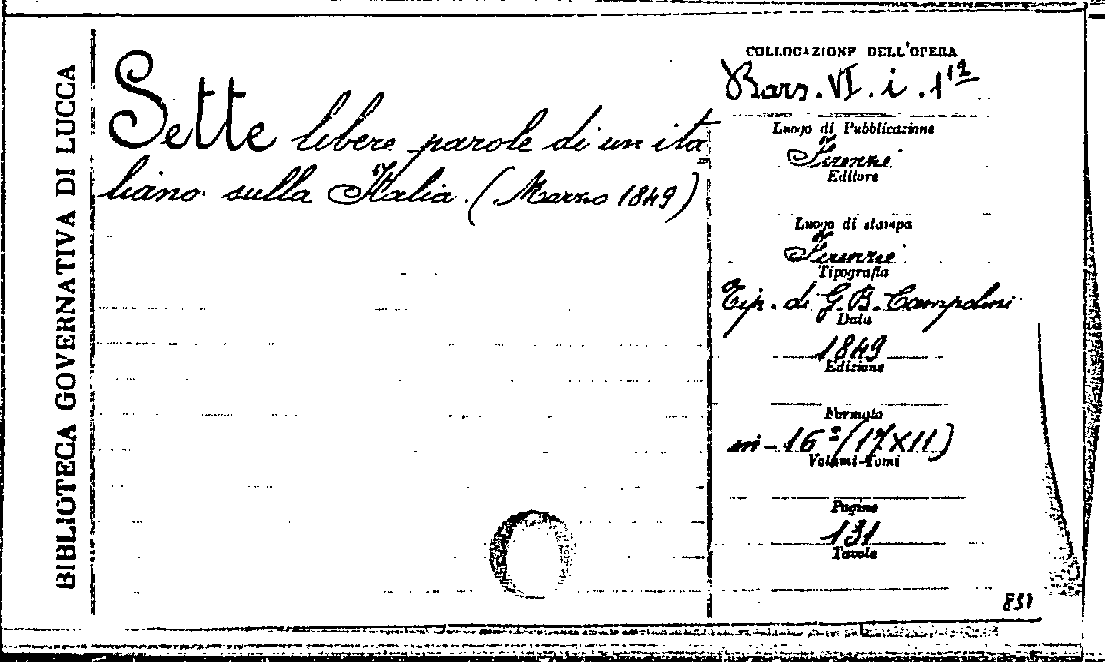 BIBLIOTECA GOVERNATIVA DI LUCCA
Sette libere parole di un ita
liano sulla Italia. (Marzo 1849)
COLLOCAZIONE DELL'OPERA
Bars. VI. i. 1 12
Luogo di Pubblicazione
Firenze
Editore
Luogo di stampa
Firenze
Tipografia
Tip. di G. B. Campolmi
Data
1849
Edizione
Formato
in-16º (17X11)
Volumi-Tomi
Pagine
131
Tavole
831